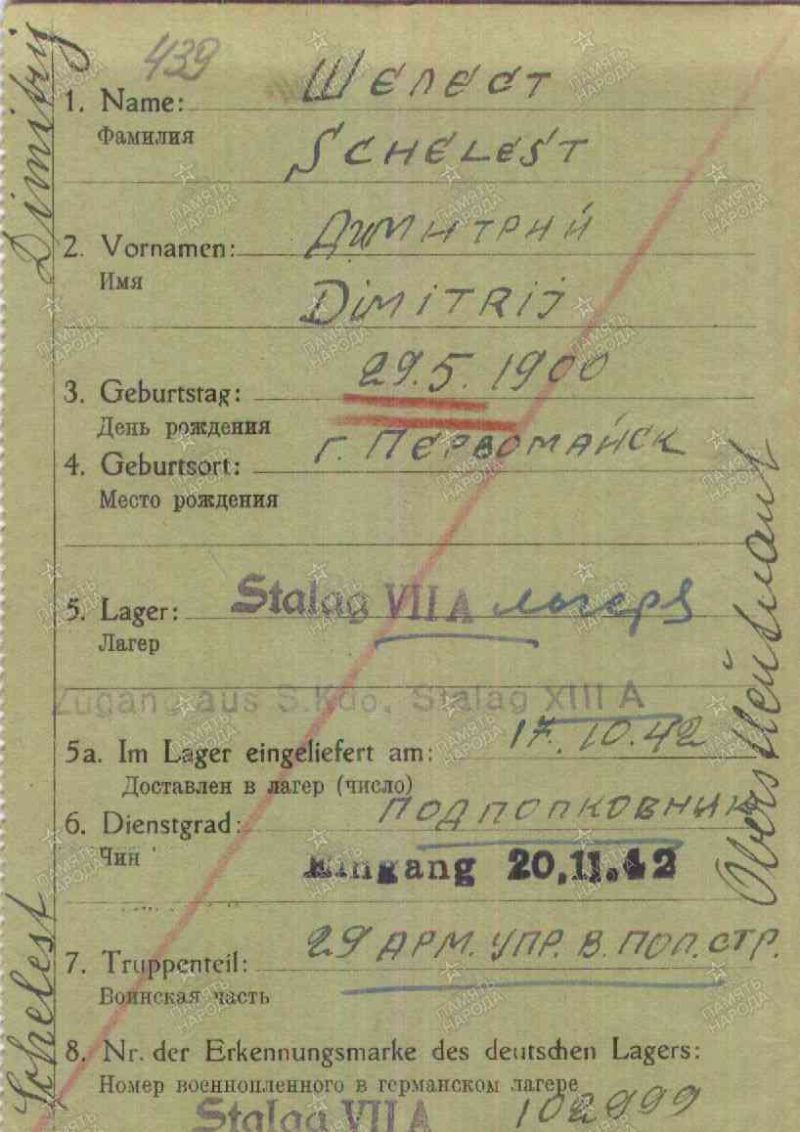 439
Dimitrij
Шелест
1. Name:
Фамилия
Schelest
Димитрий
2. Vornamen:
Имя
Dimitrij
29.5.1900
3. Geburtstag:
День рождения
г. Первомайск
4. Geburtsort:
Место рождения
5. Lager: Stalag VII A лагеря
Лагер
Zugang aus S.Kdo. Stalag XIII A
5a. Im Lager eingeliefert am: 17.10.42
Доставлен в лагер (число)
6. Dienstgrad: подполковник
Чин
Eingang 20.11.42
Oberstleutnant
7. Truppenteil: 29 арм. упр. в. пол. стр.
Воинская часть
Schelest
8. Nr. der Erkennungsmarke des deutschen Lagers:
Номер военнопленного в германском лагере
Stalag VII A 102999
ПАМЯТЬ НАРОДА